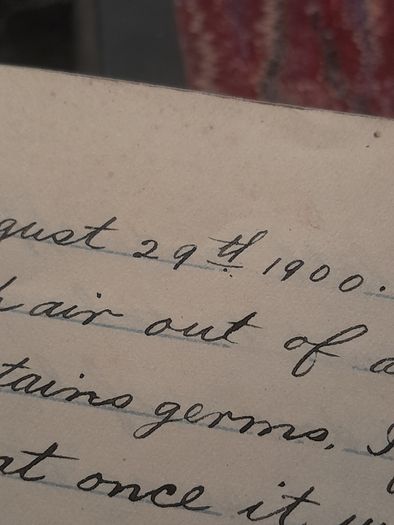 gust 29th 1900.
air out of a
tains germs.
at once it